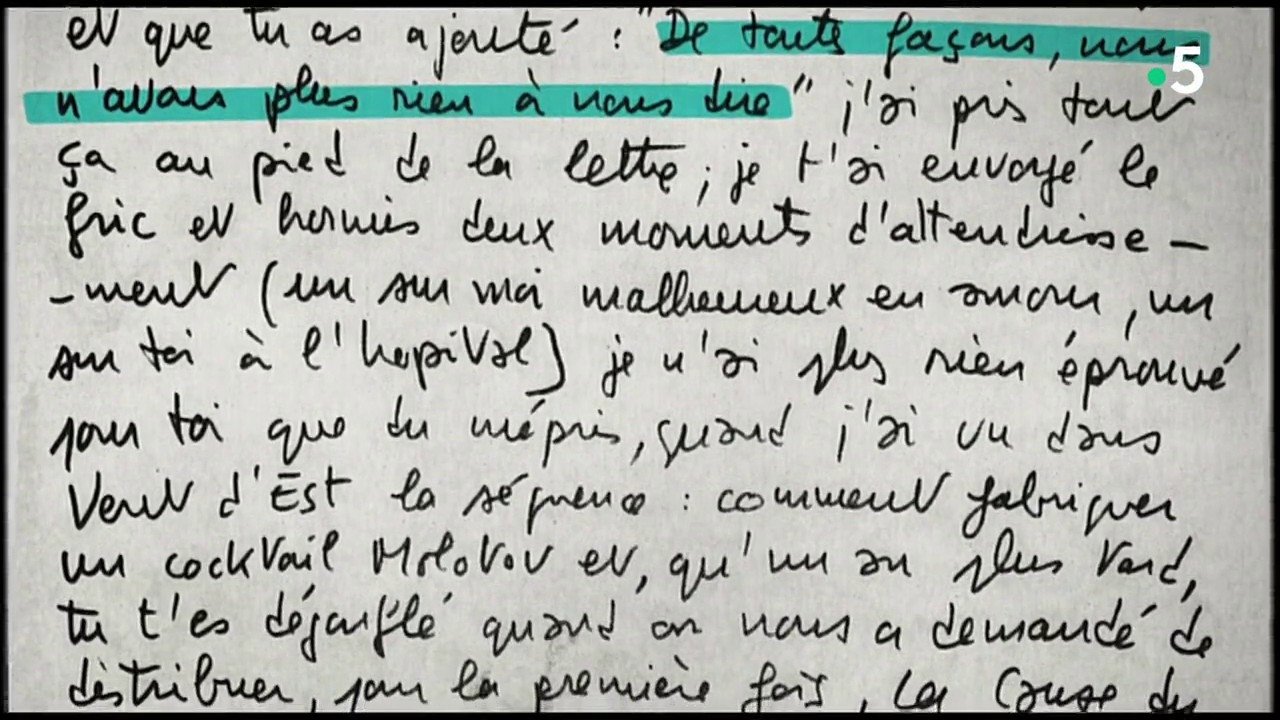 et que tu as ajouté : "De toute façons, nous
n'avons plus rien à nous dire" j'ai pris tout
ça au pied de la lettre ; je t'ai envoyé le
fric et hormis deux moments d'attendrisse-
-ment (un sur moi malheureux en amour, un
sur toi à l'hopital) je n'ai plus rien éprouvé
pour toi que du mépris, quand j'ai vu dans
Vent d'Est la séquence : comment fabriquer
un cocktail Molotov et, qu'un an plus tard,
tu t'es dégonflé quand on nous a demandé de
distribuer, pour la première fois, La Cause du
5